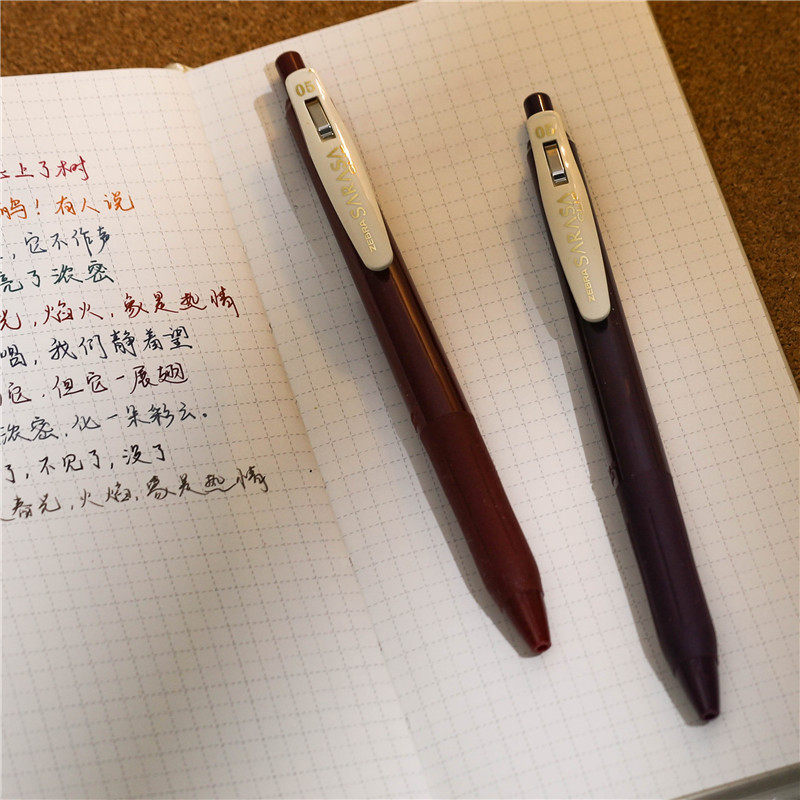 上了树
鸣！有人说
，它不作声
亮了浓密
光，焰火，象是热情
唱，我们静着望
它，但它一展翅
浓密，化一朵彩云。
了，不见了，没了
春光，火焰，象是热情
05
ZEBRA SARASA
05
ZEBRA SARASA